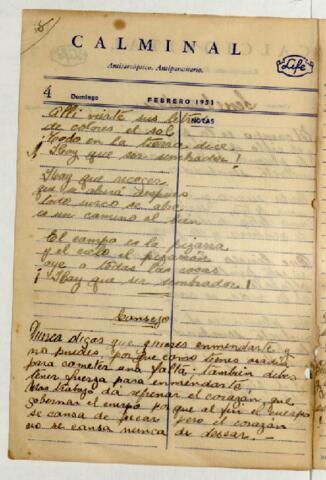 CALMINAL
Antisarcópico. Antiparasitario.
Life
4 Domingo FEBRERO 1951
NOTAS
Allí viste sus
de colores el sol
Todo en la tierra dice
¡Hay que ser sembrador!
Hay que recoger
que se abrirá después
todo surco se abre
es un camino al bien
El campo es la pizarra
y el cielo el pizarrón
oye a todas las cosas
¡Hay que ser sembrador!
Consejo
Nunca digas que quieres enmendarte y
no puedes, porque como tienes
para cometer una falta, también debes
tener fuerza para enmendarte
Mas trabajo da refrenar el corazón, que
gobernar el cuerpo porque al fin el cuerpo
se cansa de pecar pero el corazón
no se cansa nunca de desear.